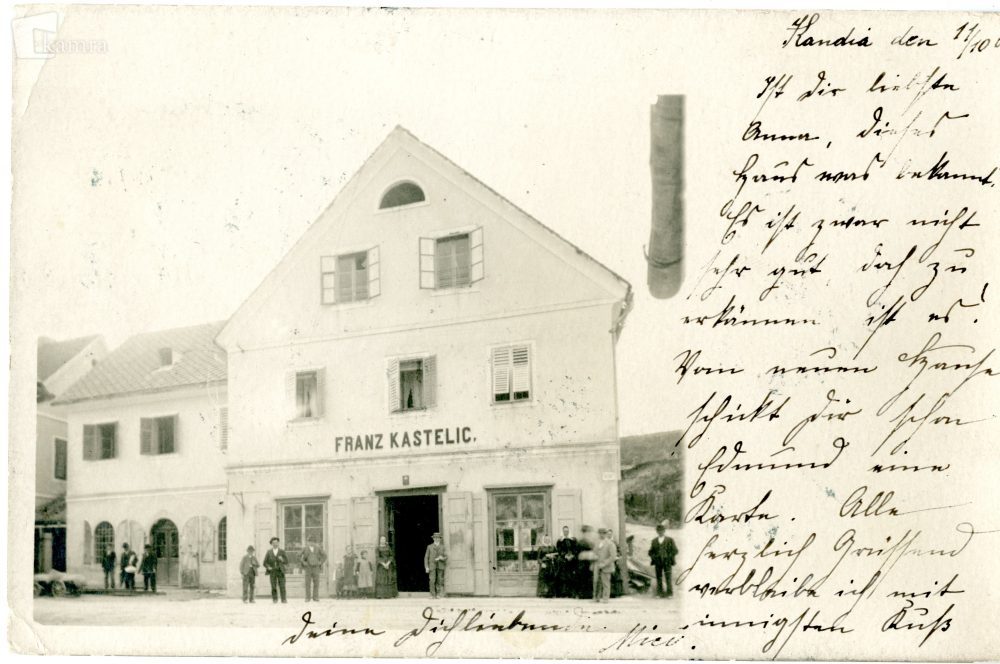 kamra
Kandia den 11/10
Ist dir liebste
Anna, dieses
Haus was bekannt.
Es ist zwar nicht
sehr gut, doch zu
erkännen ist es!
Vom neuen Hause
schickt Dir schon
Edmund eine
Karte. Alle
herzlich Grüssend
verbleibe ich mit
innigsten Kuß
deine Dichliebende
Mici.
FRANZ KASTELIC.